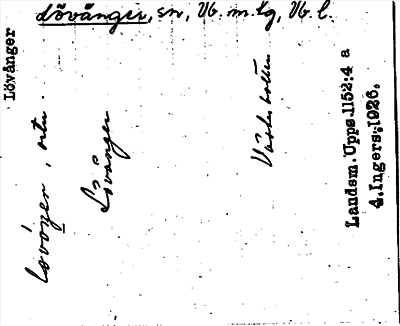 Lövånger, sn, Vb. m. tg, Vb. l.
Lövånger
Lövånger
Västerbotten
Landsm. Upps. 1152:4 a
4. Ingers. 1926.